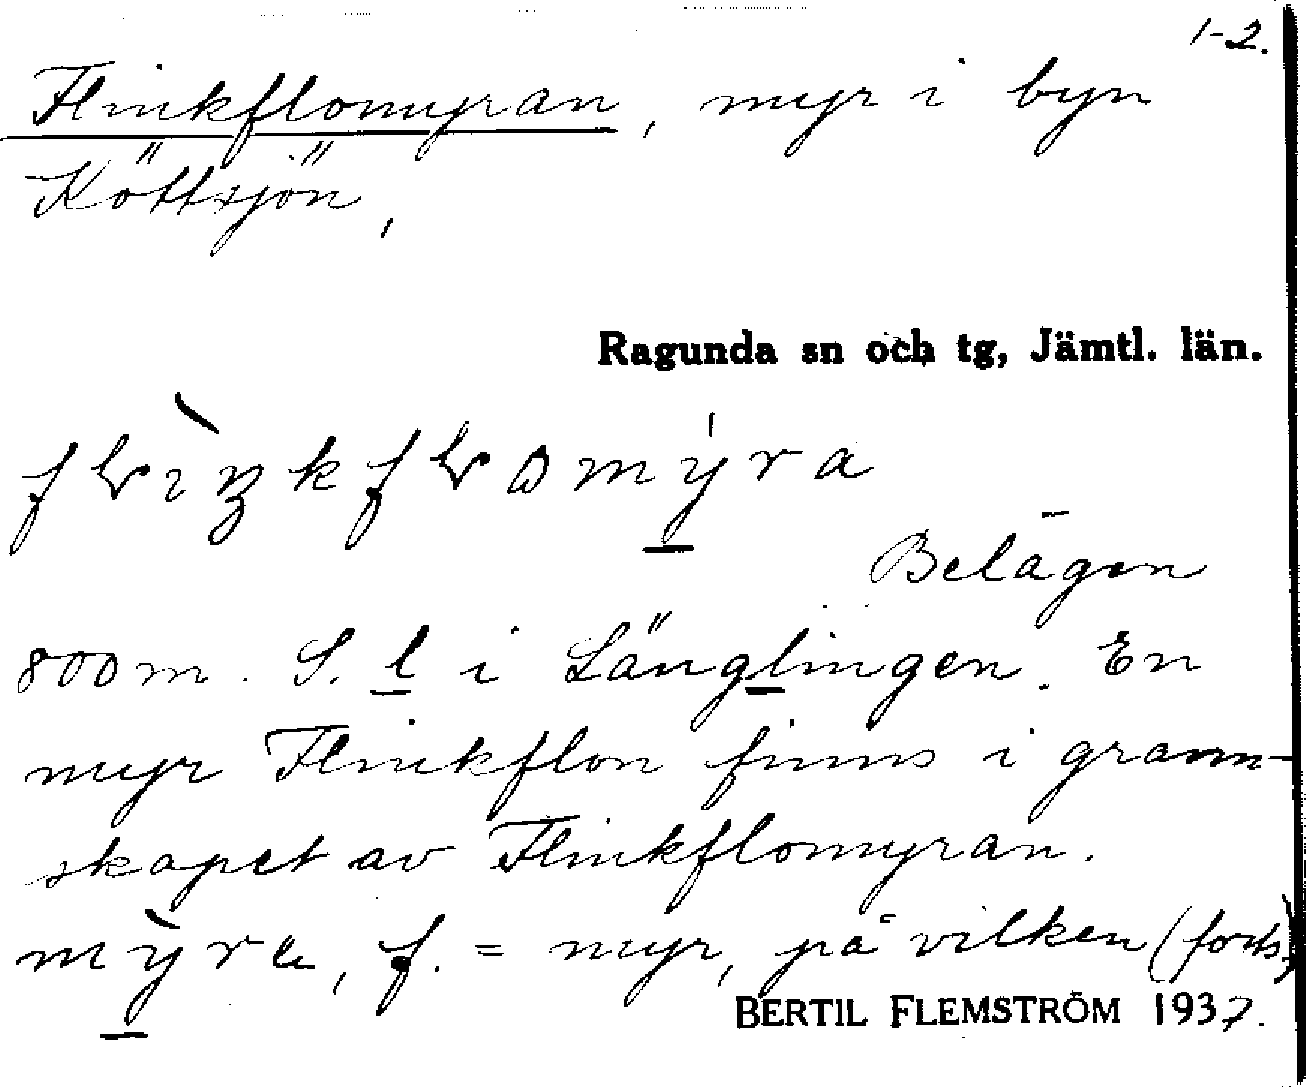 1-2.
Flinkflomyran, myr i byn
Köttsjön,
Ragunda sn och tg, Jämtl. län.
Belägen
800 m. S. l i Länglingen. En
myr Flinkflon finns i grann-
skapet av Flinkflomyran.
f. = myr, på vilken (forts.)
BERTIL FLEMSTRÖM 1937.